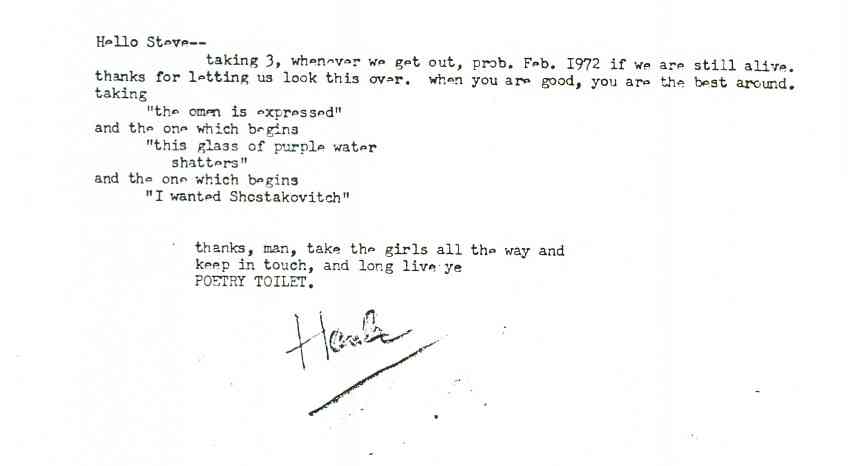 Hello Steve--
taking 3, whenever we get out, prob. Feb. I972 if we are still alive.
thanks for letting us look this over. when you are good, you are the best around.
taking
"the omen is expressed"
and the one which begins
"this glass of purple water
shatters"
and the one which begins
"I wanted Shostakovitch"
thanks, man, take the girls all the way and
keep in touch, and long live ye
POETRY TOILET.
Hank